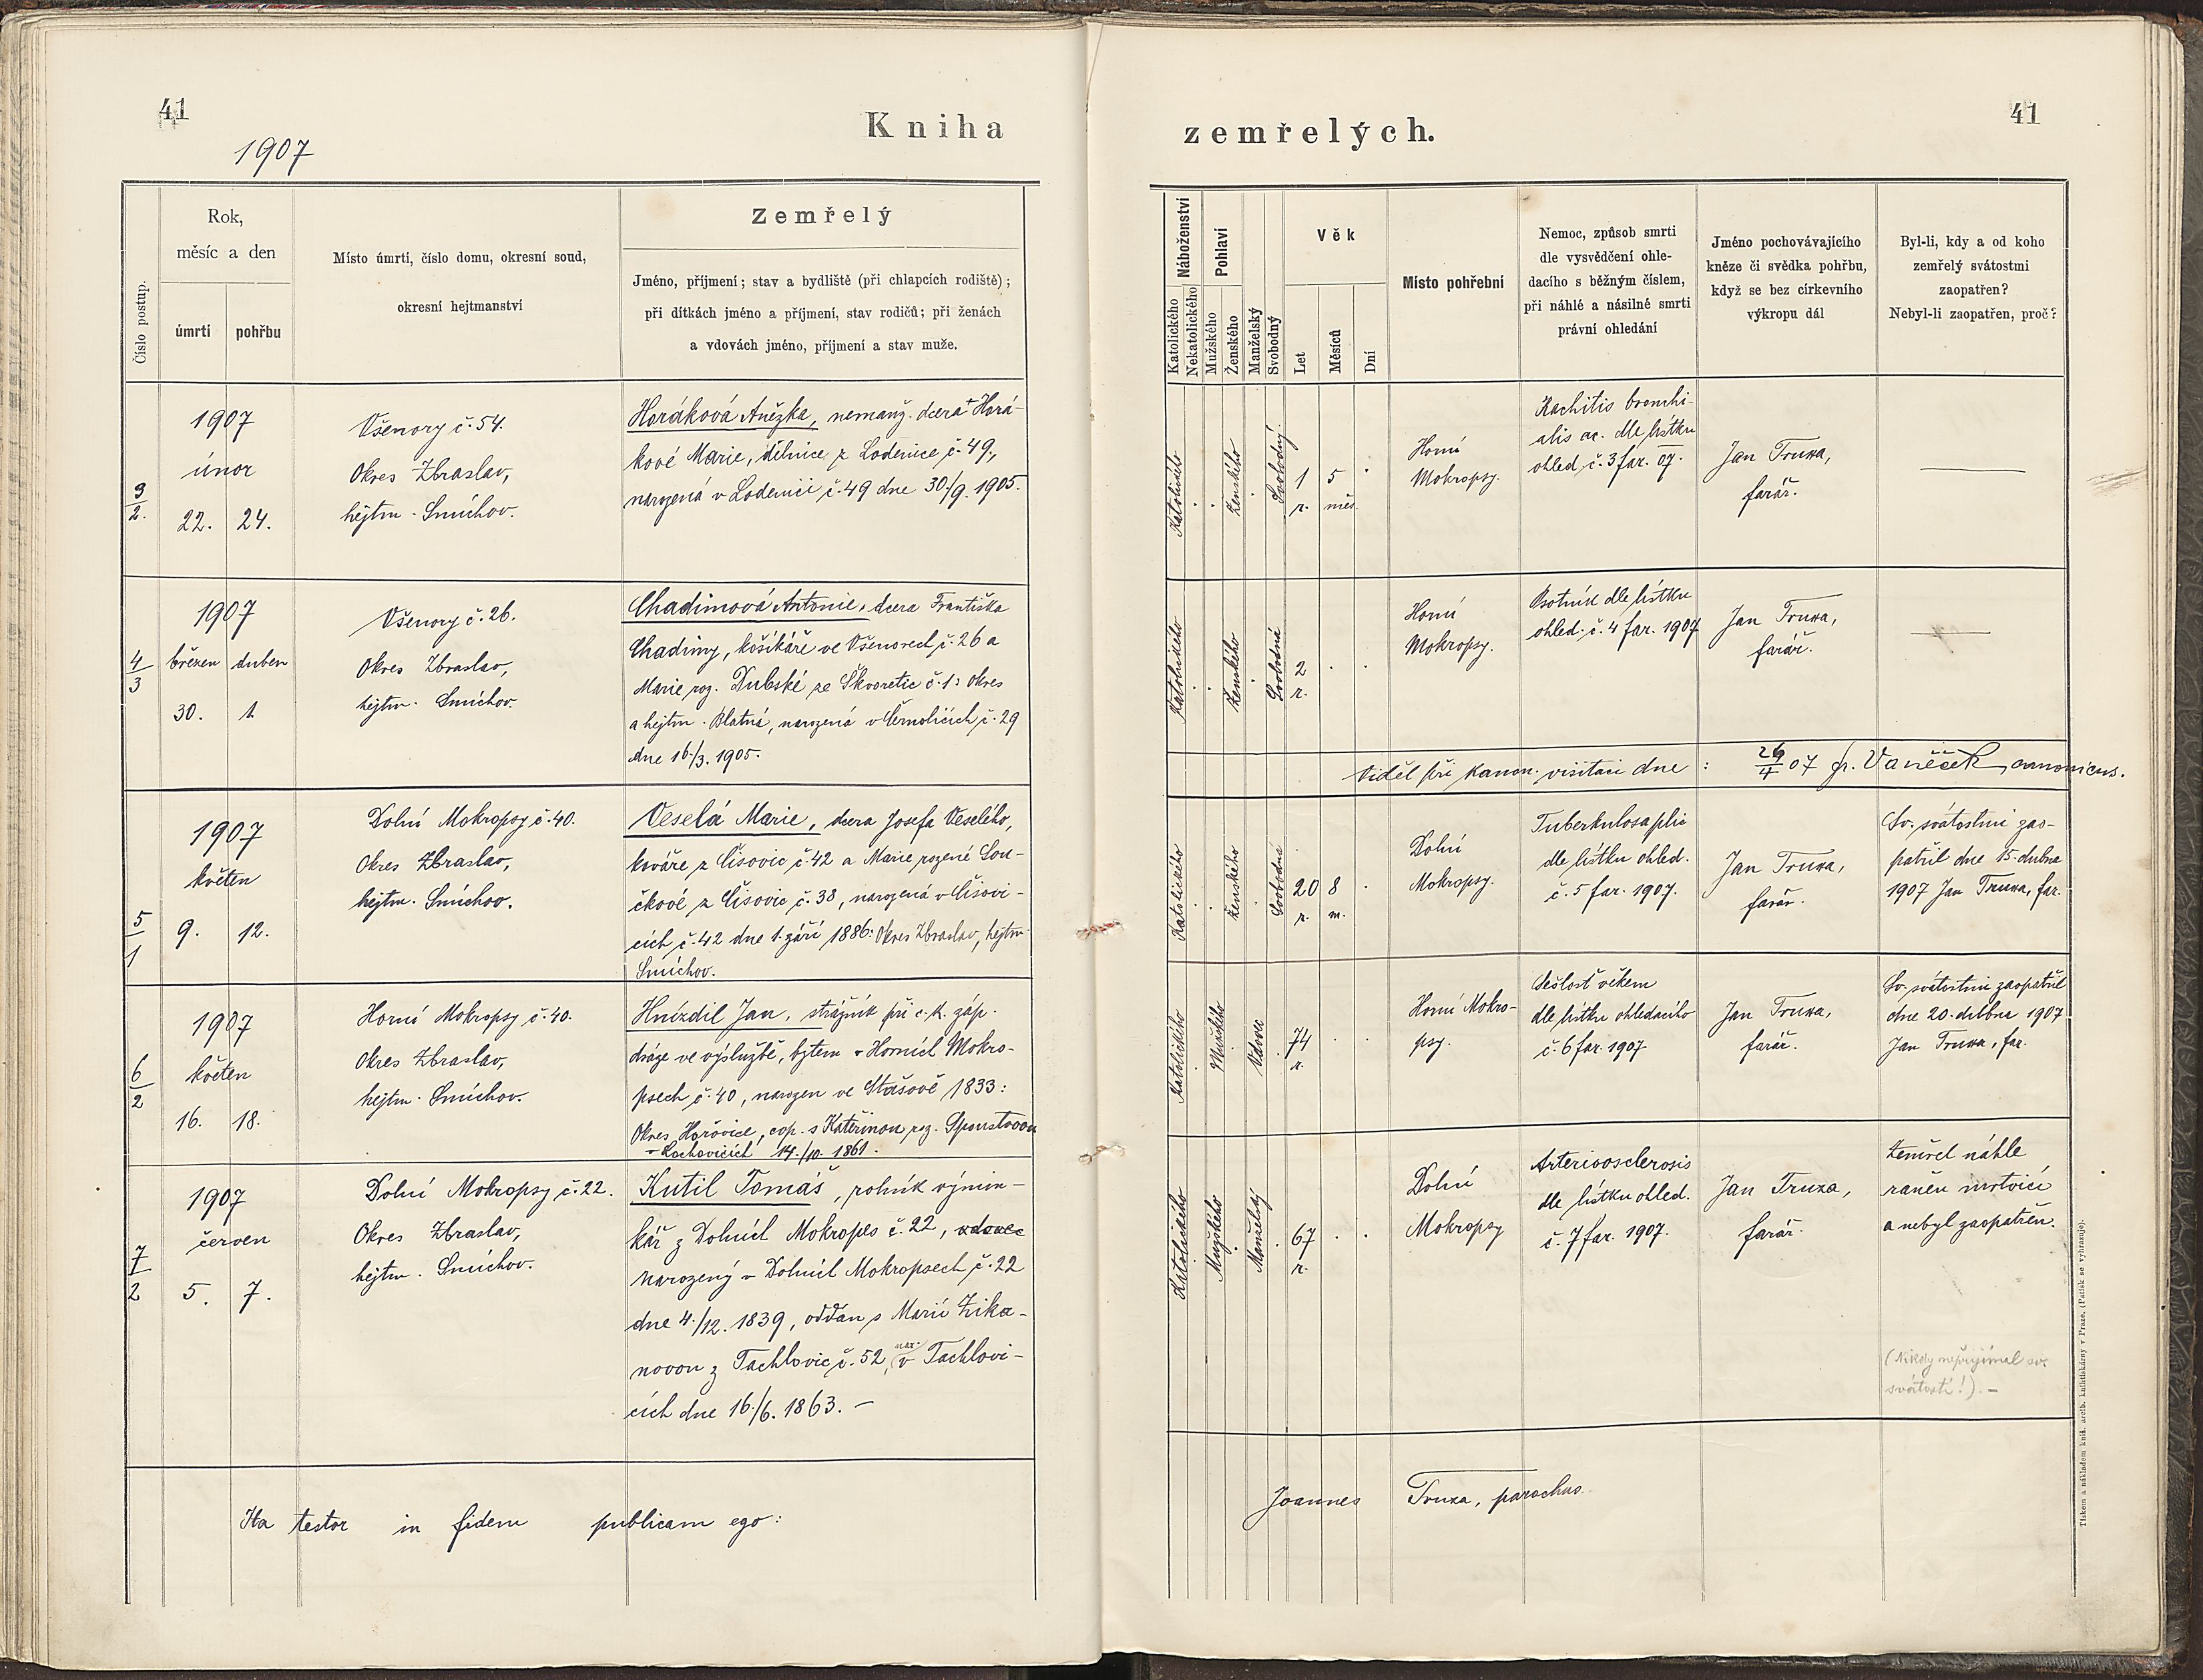 41
1907
Kniha
Číslo postup.
Rok,
měsíc a den
úmrtí
pohřbu
Místo úmrtí, číslo domu, okresní soud,
okresní hejtmanství
Zemřelý
Jméno, příjmení; stav a bydliště (při chlapcích rodiště);
při dítkách jméno a příjmení, stav rodičů; při ženách
a vdovách jméno, příjmení a stav muže.
3
2.
1907
únor
22. 24.
Všenory č. 54.
Okres Zbraslav,
hejtm. Smíchov.
Horáková Anežka, nemanž. dcera Horá-
kové Marie, dělnice z Lodenice č. 49,
narozená v Lodenici č. 49 dne 30./9. 1905.
4
3
1907
březen duben
30. 1.
Všenory č. 26.
Okres Zbraslav,
hejtm. Smíchov.
Chadimová Antonie, dcera Františka
Chadimy, košíkáře ve Všenorech č. 26 a
Marie roz. Dubské ze Škvoretic č. 1: okres
a hejtm. Blatná, narozená v Černolicích č. 29
dne 16./3. 1905.
5
1
1907
květen
9. 12.
Dolní Mokropsy č. 40.
Okres Zbraslav,
hejtm. Smíchov.
Veselá Marie, dcera Josefa Veselého,
kováře z Čisovic č. 42 a Marie rozené Sou-
čkové z Čisovic č. 38, narozená v Čisovi-
cích č. 42 dne 1. září 1886: Okres Zbraslav, hejtm.
Smíchov.
6
2
1907
květen
16. 18.
Horní Mokropsy č. 40.
Okres Zbraslav,
hejtm. Smíchov.
Hnízdil Jan, strážník při c. k. záp.
dráze ve výslužbě, bytem v Horních Mokro-
psech č. 40, narozen ve Stašově 1833:
Okres Hořovice, cop. s Kateřinou roz. Spoustovou
v Lochovicích 14./10. 1861.
7
2
1907
červen
5. 7.
Dolní Mokropsy č. 22.
Okres Zbraslav,
hejtm. Smíchov.
Kutil Tomáš, rolník výmin-
kář z Dolních Mokropes č. 22, vdovec
narozený v Dolních Mokropsech č. 22
dne 4./12. 1839, oddán s Marií Zika-
novou z Tachlovic č. 52, nar. v Tachlovi-
cích dne 16./6. 1863. —
Ita testor in fidem publicam ego:
41
zemřelých.
Náboženství
Katolického
Nekatolického
Pohlaví
Mužského
Ženského
Manželský
Svobodný
Věk
Let
Měsíců
Dní
Místo pohřební
Nemoc, způsob smrti
dle vysvědčení ohle-
dacího s běžným číslem,
při náhlé a násilné smrti
právní ohledání
Jméno pochovávajícího
kněze či svědka pohřbu,
když se bez církevního
výkropu dál
Byl-li, kdy a od koho
zemřelý svátostmi
zaopatřen?
Nebyl-li zaopatřen, proč?
Katolického
Ženského
Svobodný
1
r.
5
měs.
Horní
Mokropsy.
Rachitis bronchi-
alis ac. dle lístku
ohled. č. 3 far. 07.
Jan Truxa,
farář.
Katolického
Ženského
Svobodná
2
r.
Horní
Mokropsy.
Psotník dle lístku
ohled. č. 4 far. 1907
Jan Truxa,
farář.
Viděl při kanon. visitaci dne : 24/4 07 fr. Vaněček, canonicus.
Katolického
Ženského
Svobodná
20
r.
8
m.
Dolní
Mokropsy.
Tuberkulosa plic
dle lístku ohled.
č. 5 far. 1907.
Jan Truxa,
farář.
Sv. svátostmi zao-
patřil dne 15. dubna
1907 Jan Truxa, far.
Katolického
Mužského
Vdovec
74
r.
Horní Mokro-
psy.
Sešlosť věkem
dle lístku ohledacího
č. 6 far. 1907
Jan Truxa,
farář.
Sv. svátostmi zaopatřil
dne 20. dubna 1907
Jan Truxa, far.
Katolického
Mužského
Manželský
67
r.
Dolní
Mokropsy
Arteriosclerosis
dle lístku ohled.
č. 7 far. 1907.
Jan Truxa,
farář.
Zemřel náhle
raněn mrtvicí
a nebyl zaopatřen.
(Nikdy nepřijímal sv.
svátostí!). —
Joannes Truxa, parochus.
Tiskem a nákladem kníž. arcib. knihtiskárny v Praze. (Patisk se vyhrazuje).